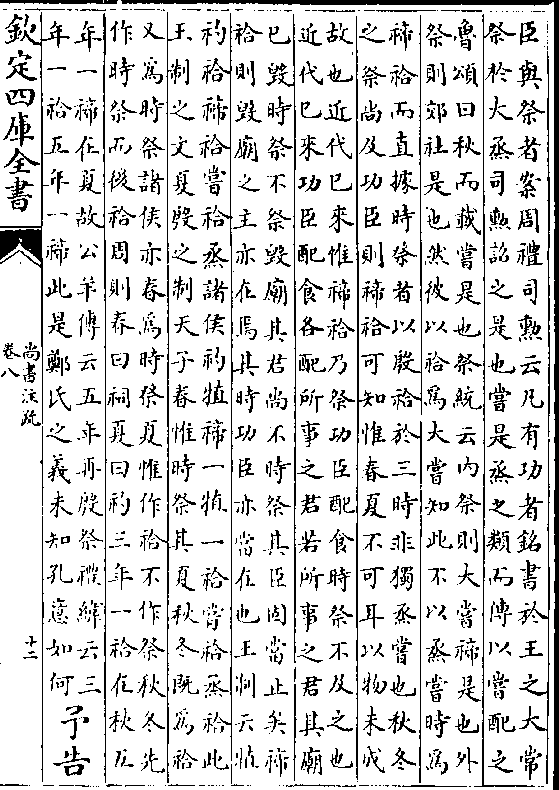 臣與祭者案周禮司勲云凡有功者銘書於王之大常
祭於大烝司勲詔之是也嘗是烝之類而傳以嘗配之
魯頌曰秋而載嘗是也祭統云内祭則大嘗禘是也外
祭則郊社是也然彼以祫為大嘗知此不以烝嘗時為
禘祫而直據時祭者以殷祫於三時非獨烝嘗也秋冬
之祭尚及功臣則禘祫可知惟春夏不可耳以物未成
故也近代已來惟禘祫乃祭功臣配食時祭不及之也
近代已來功臣配食各配所事之君若所事之君其廟
已毀時祭不祭毀廟其君尚不時祭其臣固當止矣禘
祫則毀廟之主亦在焉其時功臣亦當在也王制云犆
礿祫禘祫嘗祫烝諸侯礿犆禘一犆一祫嘗祫烝祫此
王制之文夏殷之制天子春惟時祭其夏秋冬既為祫
又為時祭諸侯亦春為時祭夏惟作祫不作祭秋冬先
作時祭而後祫周則春曰祠夏曰礿三年一祫在秋五
年一禘在夏故公羊傳云五年再殷祭禮緯云三
年一祫五年一禘此是鄭氏之義未知孔意如何
予告
欽定四庫全書
尚書注疏
卷八
十二